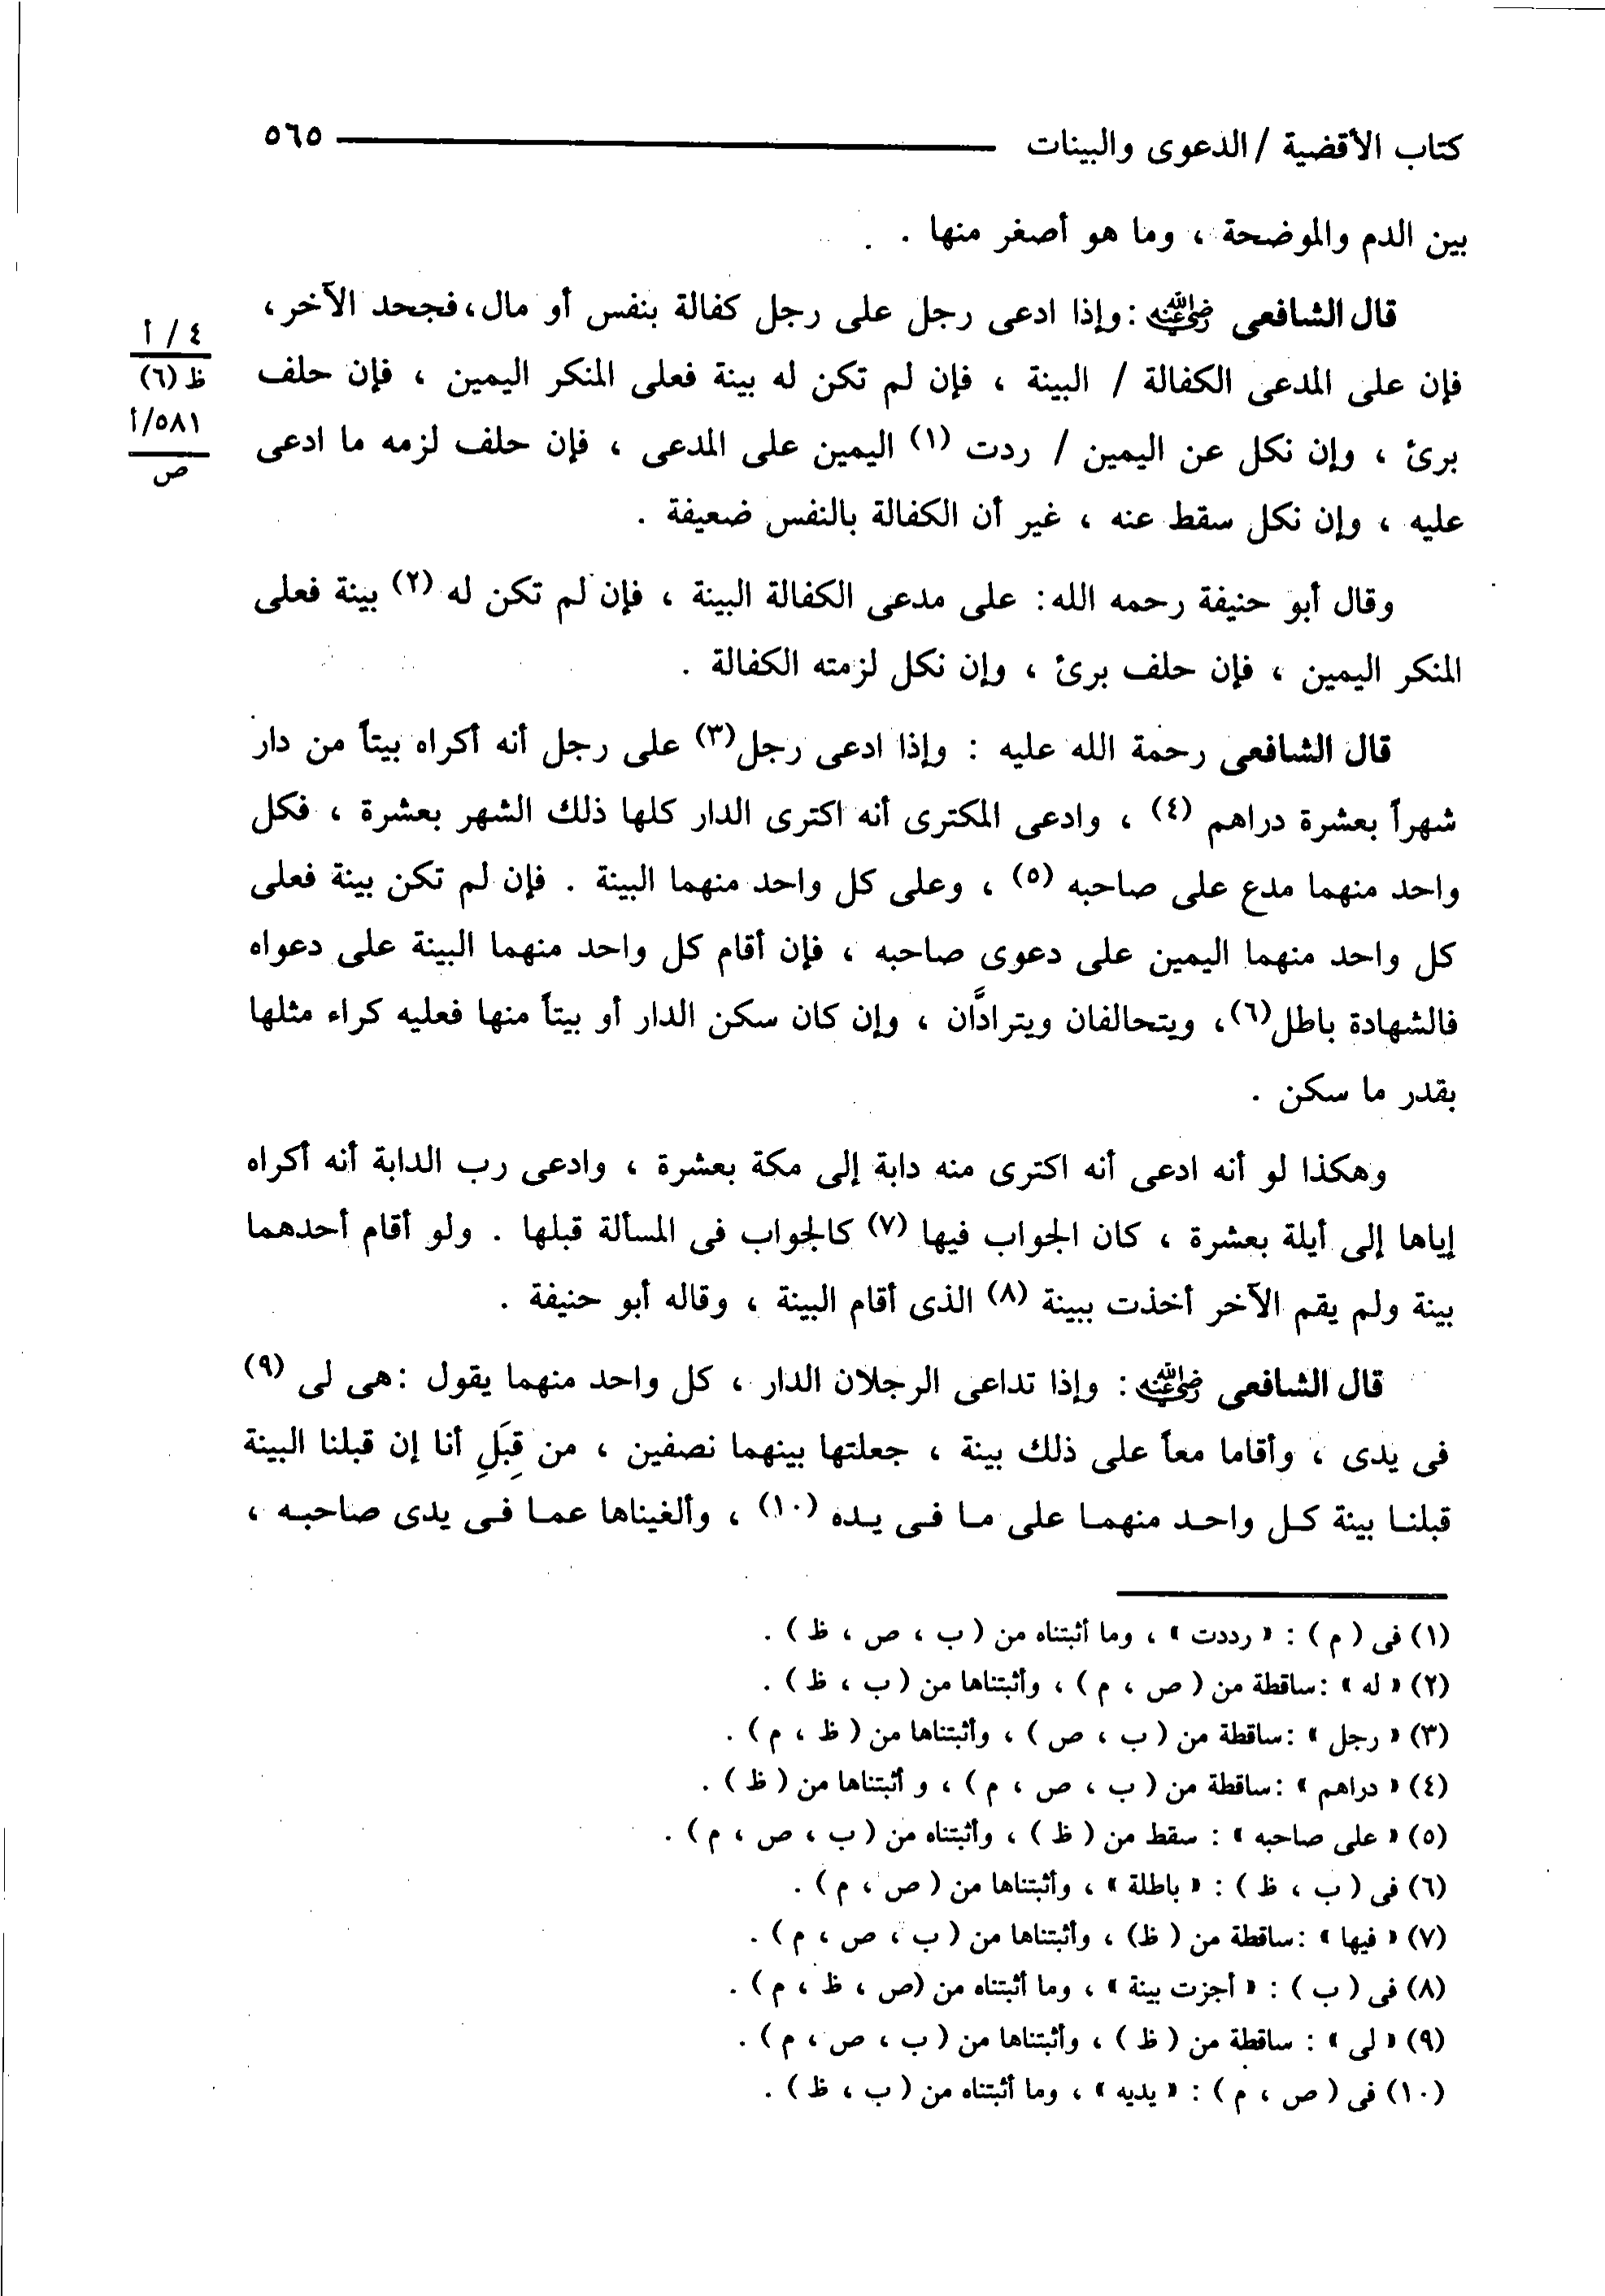 كتاب الأقضية / الدعوى والبينات ٥٦٥
بين الدم والموضحة ، وما هو أصغر منها .
قال الشافعى رضي الله عنه : وإذا ادعى رجل على رجل كفالة بنفس أو مال ، فجحد الآخر ،
فإن على المدعى الكفالة / البينة ، فإن لم تكن له بينة فعلى المنكر اليمين ، فإن حلف
برئ ، وإن نكل عن اليمين / ردت (١) اليمين على المدعى ، فإن حلف لزمه ما ادعى
عليه ، وإن نكل سقط عنه ، غير أن الكفالة بالنفس ضعيفة .
٤ / أ
ظ (٦)
٥٨١/أ
ص
وقال أبو حنيفة رحمه الله : على مدعى الكفالة البينة ، فإن لم تكن له (٢) بينة فعلى
المنكر اليمين ، فإن حلف برئ ، وإن نكل لزمته الكفالة .
قال الشافعى رحمة الله عليه : وإذا ادعى رجل (٣) على رجل أنه أكراه بيتاً من دار
شهراً بعشرة دراهم (٤) ، وادعى المكترى أنه اكترى الدار كلها ذلك الشهر بعشرة ، فكل
واحد منهما مدع على صاحبه (٥) ، وعلى كل واحد منهما البينة . فإن لم تكن بينة فعلى
كل واحد منهما اليمين على دعوى صاحبه ، فإن أقام كل واحد منهما البينة على دعواه
فالشهادة باطل (٦) ، ويتحالفان ويترادَّان ، وإن كان سكن الدار أو بيتاً منها فعليه كراء مثلها
بقدر ما سكن .
وهكذا لو أنه ادعى أنه اكترى منه دابة إلى مكة بعشرة ، وادعى رب الدابة أنه أكراه
إياها إلى أيلة بعشرة ، كان الجواب فيها (٧) كالجواب فى المسألة قبلها . ولو أقام أحدهما
بينة ولم يقم الآخر أخذت ببينة (٨) الذى أقام البينة ، وقاله أبو حنيفة .
قال الشافعى رضي الله عنه : وإذا تداعى الرجلان الدار ، كل واحد منهما يقول : هى لى (٩)
فى يدى ، وأقاما معاً على ذلك بينة ، جعلتها بينهما نصفين ، من قِبَلِ أنا إن قبلنا البينة
قبلنا بينة كل واحد منهما على ما فى يده (١٠) ، وألغيناها عما فى يدى صاحبه ،
(١) فى ( م ) : « رددت » ، وما أثبتناه من ( ب ، ص ، ظ ) .
(٢) « له » : ساقطة من ( ص ، م ) ، وأثبتناها من ( ب ، ظ ) .
(٣) « رجل » : ساقطة من ( ب ، ص ) ، وأثبتناها من ( ظ ، م ) .
(٤) « دراهم » : ساقطة من ( ب ، ص ، م ) ، و أثبتناها من ( ظ ) .
(٥) « على صاحبه » : سقط من ( ظ ) ، وأثبتناه من ( ب ، ص ، م ) .
(٦) فى ( ب ، ظ ) : « باطلة » ، وأثبتناها من ( ص ، م ) .
(٧) « فيها » : ساقطة من ( ظ ) ، وأثبتناها من ( ب ، ص ، م ) .
(٨) فى ( ب ) : « أجزت بينة » ، وما أثبتناه من ( ص ، ظ ، م ) .
(٩) « لى » : ساقطة من ( ظ ) ، وأثبتناها من ( ب ، ص ، م ) .
(١٠) فى ( ص ، م ) : « يديه » ، وما أثبتناه من ( ب ، ظ ) .